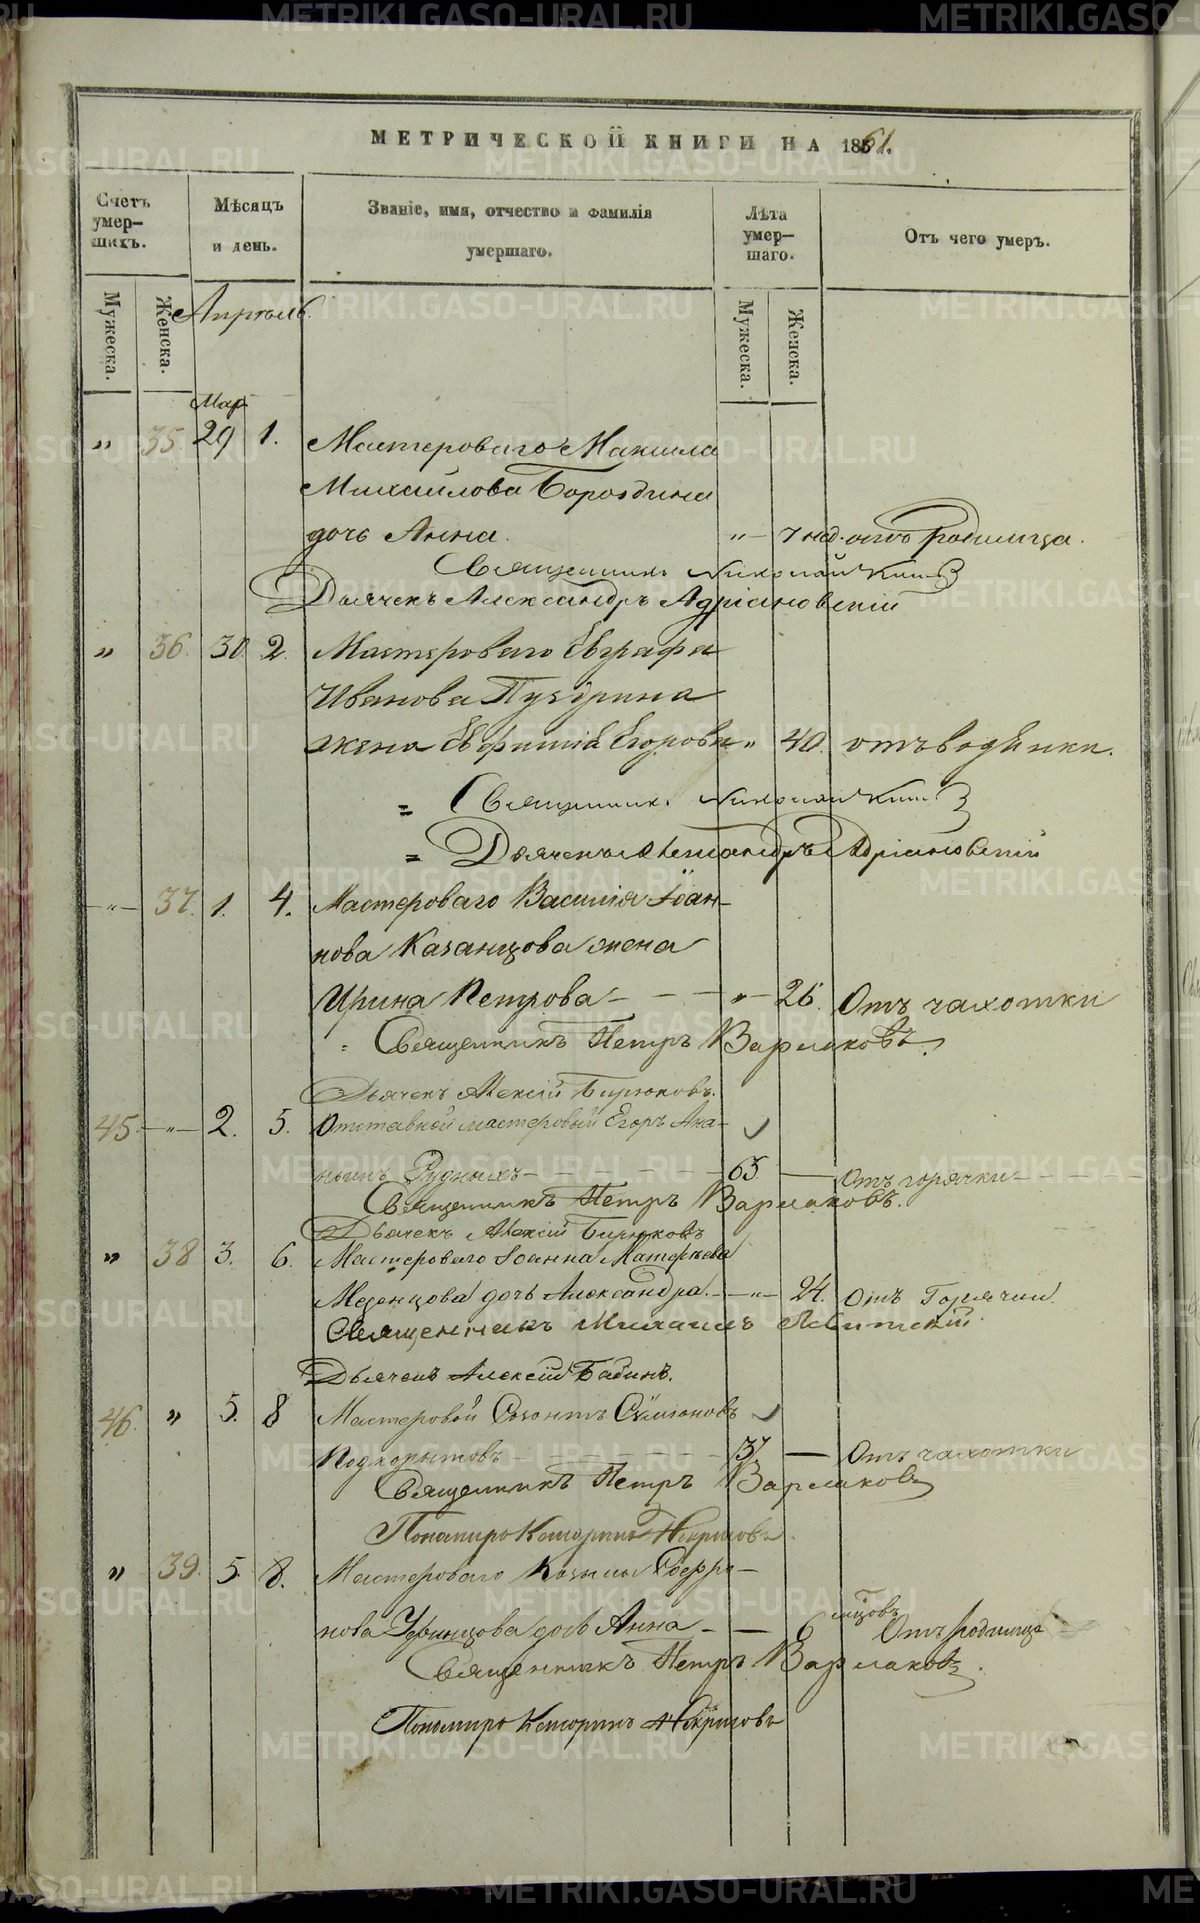 МЕТРИЧЕСКОЙ КНИГИ НА 1861.
Счетъ умер-шихъ.
Мѣсяцъ и день.
Званіе, имя, отчество и фамилія умершаго.
Лѣта умер-шаго.
Отъ чего умеръ.
Мужеска.
Женска.
Мужеска.
Женска.
Апрѣль.
Мар.
" 35. 29 1. Мастероваго Макима
Михайлова Бороздина
дочь Анна. " 7 нед. отъ родимца.
Священникъ Николай
Дьячекъ Александръ Адріановскій
" 36. 30 2. Мастероваго Евграфа
Иванова Пуздрина
жена Евфимія Егорова " 40. отъ водянки.
= Священникъ Николай
= Дьячекъ Александръ Адріановскій
" 37. 1. 4. Мастероваго Василія Іоан-
нова Казанцова жена
Ирина Петрова - - - " - 26. Отъ чахотки
Священникъ Петръ Варлаковъ.
Дьячекъ Алексій Бирюковъ.
45. " 2. 5. Отставной мастеровый Егоръ Ана-
ньинъ Рудныхъ - - - 63. — Отъ горячки
Священникъ Петръ Варлаковъ.
Дьячекъ Алексій Бирюковъ
" 38 3. 6. Мастероваго Іоанна Матѳѣева
Мезенцова дочь Александра. - - " - 24. Отъ Горячки.
Священникъ Михаилъ
Дьячекъ Алексій Бабинъ.
46. " 5. 8 Мастеровой Созонтъ Сѵмеоновъ
Подкорытовъ - - - 37 — Отъ чахотки
Священникъ Петръ Варлаковъ
Пономарь Некрасовъ
" 39. 5. 8. Мастероваго Козьмы Софро-
нова Уфинцова дочь Анна - — 6 мѣсцовъ Отъ родимца
Священникъ Петръ Варлаковъ.
Пономарь Некрасовъ
METRIKI.GASO-URAL.RU